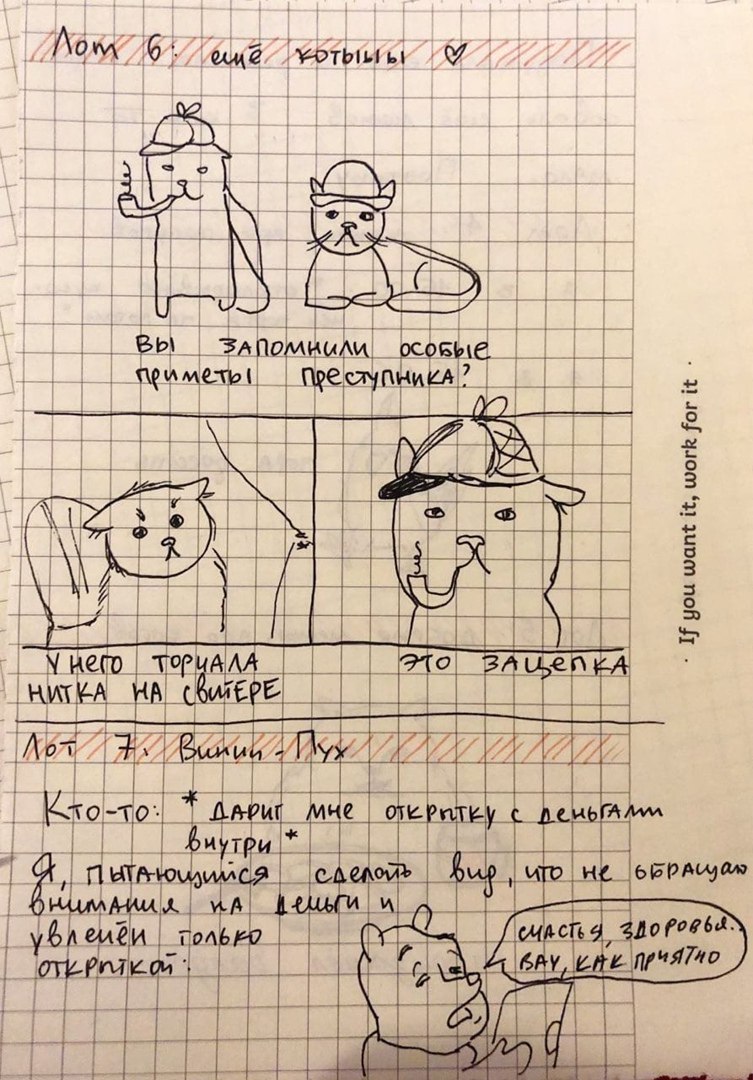 Лот 6: ещё котыыы ♡
ВЫ ЗАПОМНИЛИ ОСОБЫЕ
ПРИМЕТЫ ПРЕСТУПНИКА?
У НЕГО ТОРЧАЛА
НИТКА НА СВИТЕРЕ
ЭТО ЗАЦЕПКА
Лот 7: Винни-Пух
Кто-то: *ДАРИТ МНЕ ОТКРЫТКУ С ДЕНЬГАМИ
ВНУТРИ*
Я, ПЫТАЮЩИЙСЯ СДЕЛАТЬ ВИД, ЧТО НЕ ОБРАЩАЮ
ВНИМАНИЯ НА ДЕНЬГИ И
УВЛЕЧЁН ТОЛЬКО
ОТКРЫТКОЙ:
СЧАСТЬЯ, ЗДОРОВЬЯ..
ВАУ, КАК ПРИЯТНО
· If you want it, work for it ·